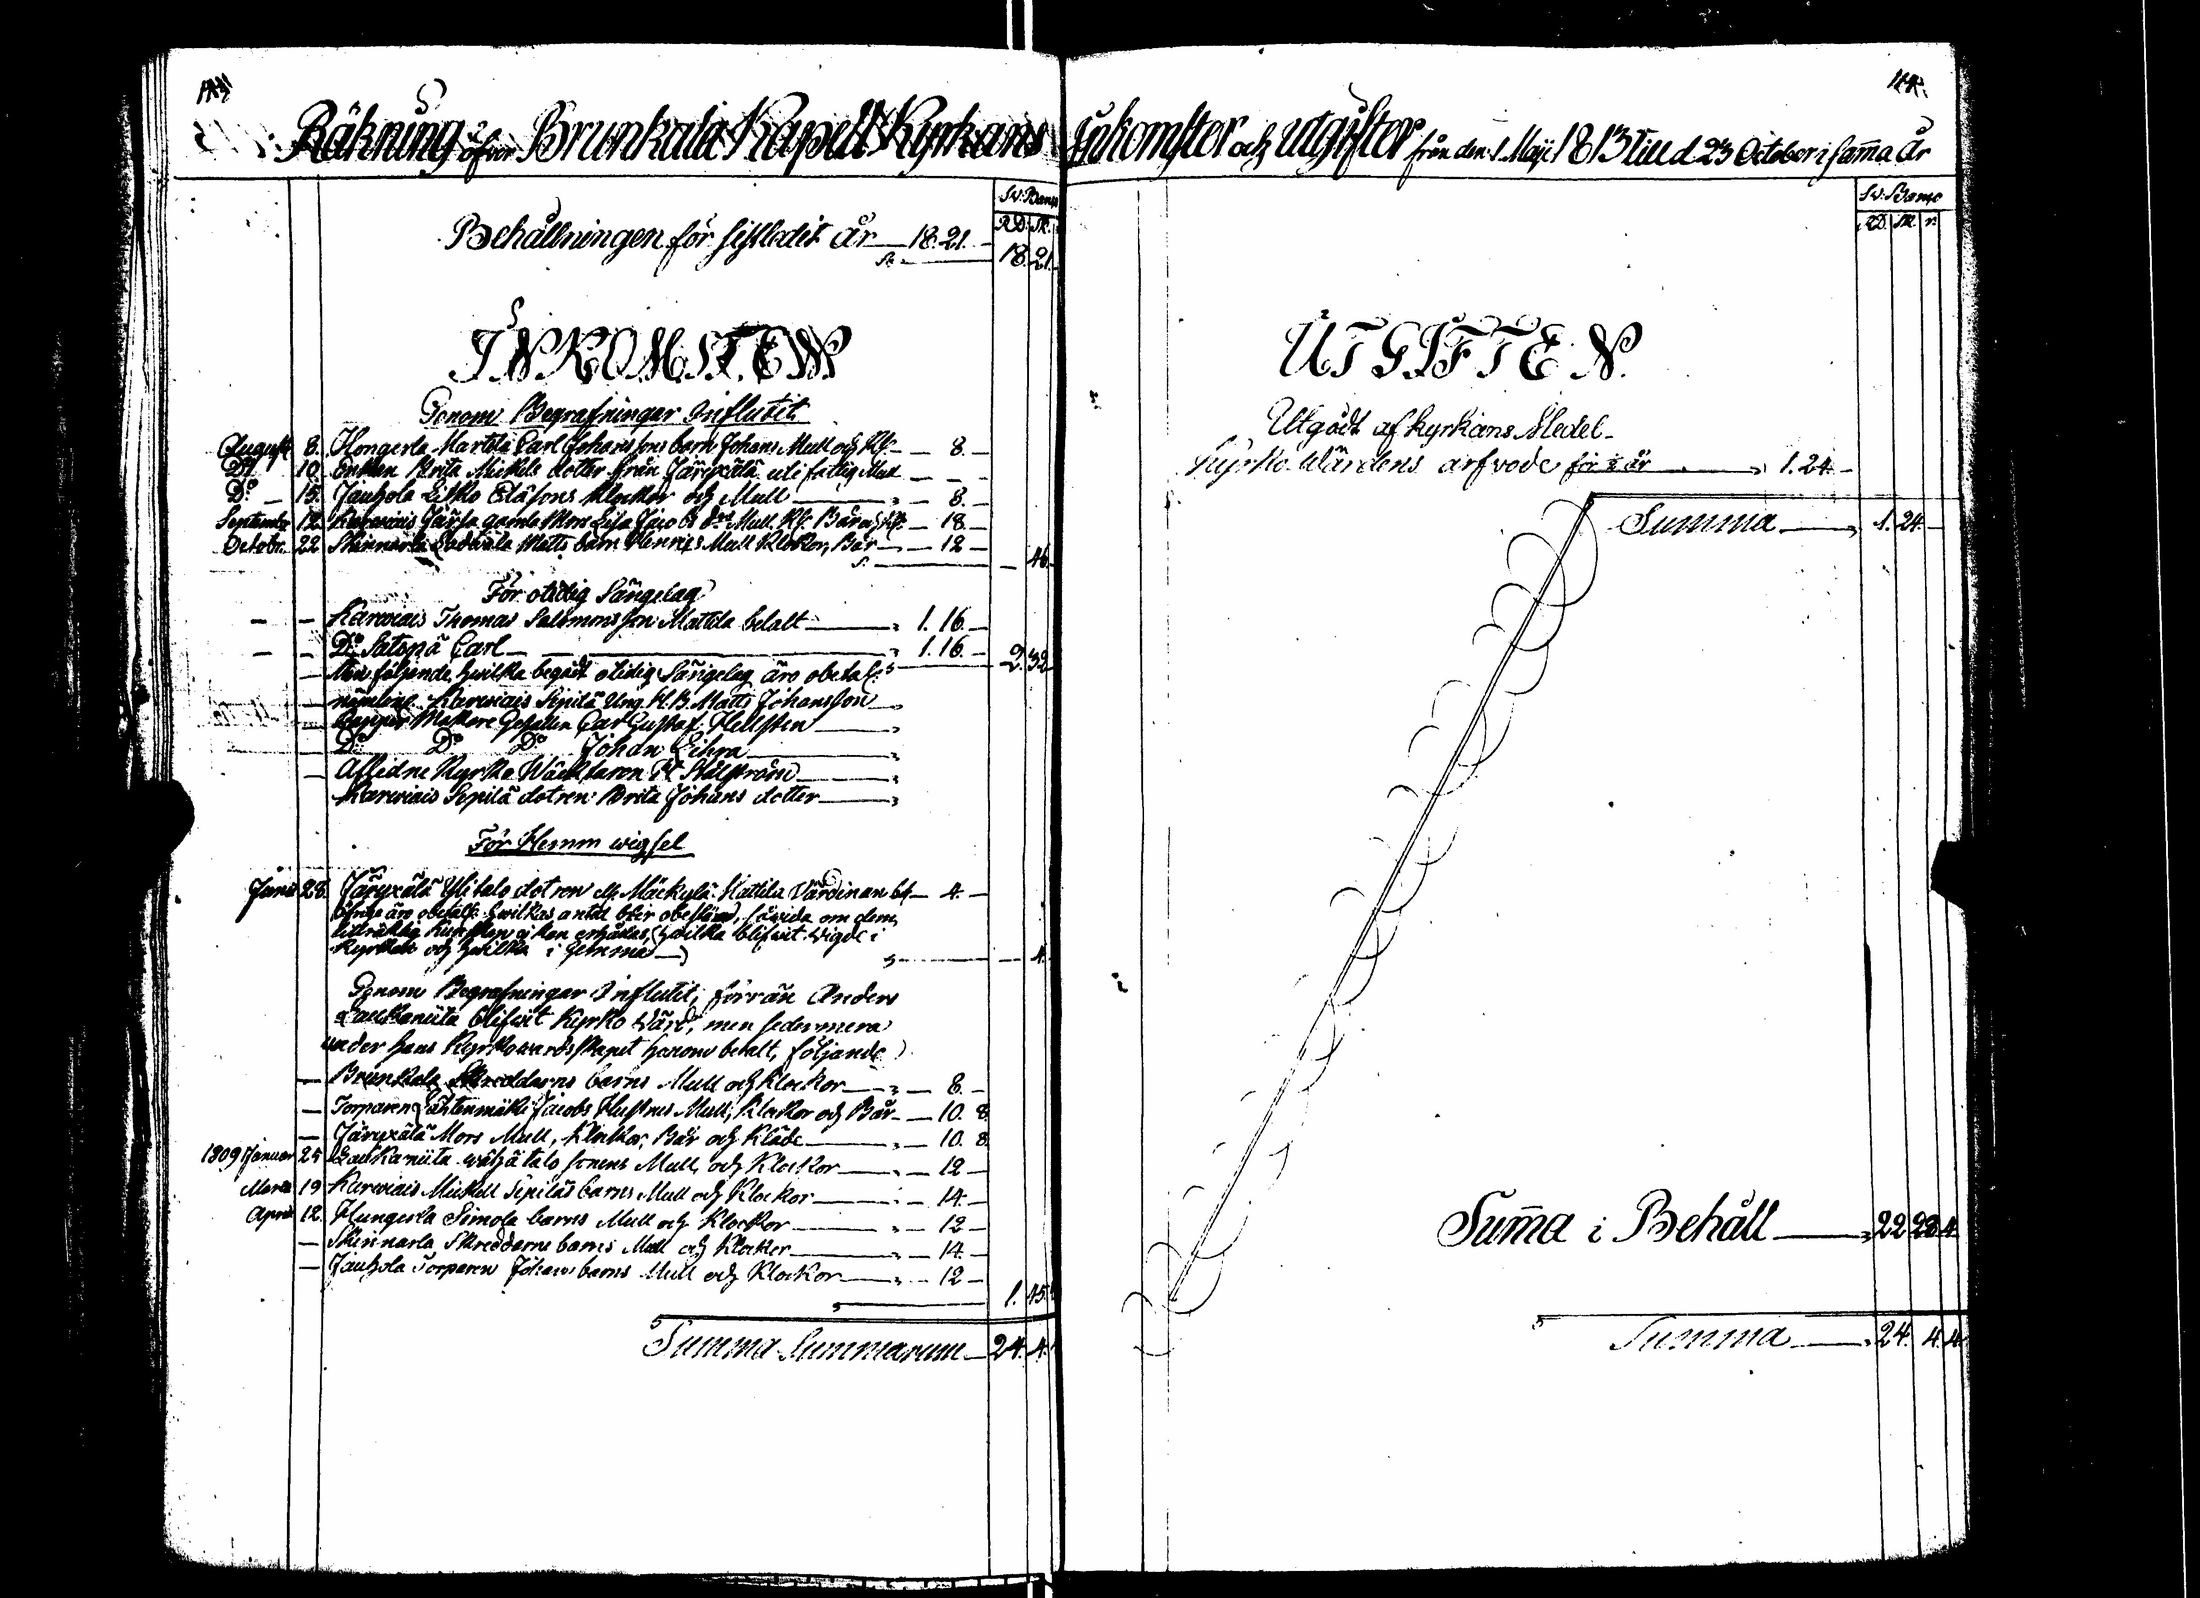 Räkning öfver Brunkala Kapell Kyrkans Inkomster och Utgifter från den 1 Maji 1813 till d 23 October i samma år
Sv: Banco
RD. SK.
Behållningen för sistledit år 18. 21.
18. 21.
INKOMSTEN
Genom Begrafningar Influtit
August 8. Hongerla Martila Carl Johanssons barn Johans Mull och Kl. 8.
Do 10. Enkan Brita Michels dotter från Järyxälä uti fattig Mull
Do 15. Jauhola Eliasons Klockor och Mull 8.
Septembr 12. Karviais gamla Mor Lisa Jacobs dr Mull, Kl. Bår 18
Octobr. 22 Skinnarla Matts barn Henrics Mull Klockor, Bår 12
46
För otidig Sängelag
Karviais Thomas Salomonsson Mattila betalt 1. 16.
Do Satopä Carl 1. 16.
2. 32
Men följande, hwilka begådt otidig Sängelag äro obetalt:
nämligen Karviais Sepilä Ung. K. B. Matts Johansson
Papper Makare Gesällen Carl Gustaf Hellsten
Do Do Do Johan
Aflidne Kyrko Wäcktaren
Karviais Sepilä dotren Brita Johans dotter
För Hemm wigsel
Junii 28. Järyxälä Ylitalo dotren Mäckylä Mattila Värdinan bt 4.
öfrige äro obetalt hwilkas antal blir obestämd, såvida om dem
kunskap ej kan erhållas, hwilka blifwit wigde i
Kyrkan och hwilka i hemma
4.
Genom Begrafningar Influtit, förrän Anders
Laukaniita blifwit Kyrko Wärd, men sedermera
under hans Kyrkowardsskapet honom betalt, följande
Brunkala Skreddarns barns Mull och Klockor 8.
Torparen Lähtenmäki Jacobs Hustrus Mull, Klockor och Bår 10. 8
Järyxälä Mors Mull, Klockor, Bår och Kläde 10. 8
1809 Januar 25 Laukaniita sonens Mull och Klockor 12
Martii 19 Karviais Mickell Sepiläs barns Mull och Klockor 14.
April 12. Hungerla Simola barns Mull och Klockor 12
Skinnarla Skreddarns barns Mull och Klockor 14
Jauhola Torparen Johans barns Mull och Klockor 12
1. 45.
Summa Summarum 24. 4.
Sv: Banco
RD. SK. r.
UTGIFTEN.
Utgådt af Kyrkans Medel
Kyrko Wärdens arfvode för ½ år 1. 24.
Summa 1. 24.
Summa i Behåll 22 28 4.
Summa 24. 4. 4.